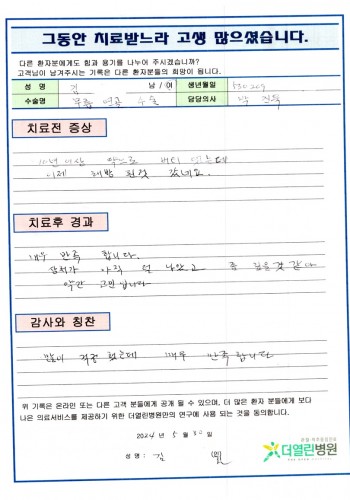 그동안 치료받느라 고생 많으셨습니다.
다른 환자분에게도 힘과 용기를 나누어 주시겠습니까?
고객님이 남겨주시는 기록은 다른 환자분들의 희망이 됩니다.
성 명 김 남 / 여 생년월일
수술명 무릎 연골 수술 담당의사 박
치료전 증상
10년 이상 약으로 버티
이제
치료후 경과
매우 만족 합니다.
상처가 아직 덜 나았고 좀
약간 고민입니다
감사와 칭찬
많이 걱정 했는데 매우 만족합니다
위 기록은 온라인 또는 다른 고객 분들에게 공개 될 수 있으며, 더 많은 환자 분들에게 보다
나은 의료서비스를 제공하기 위한 더열린병원만의 연구에 사용 되는 것을 동의합니다.
2024 년 5 월 30 일
더열린병원
성 명 : 김